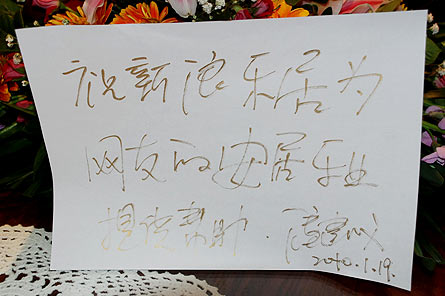 祝新浪乐居为
网友的安居乐业
提供帮助.
2010.1.19.